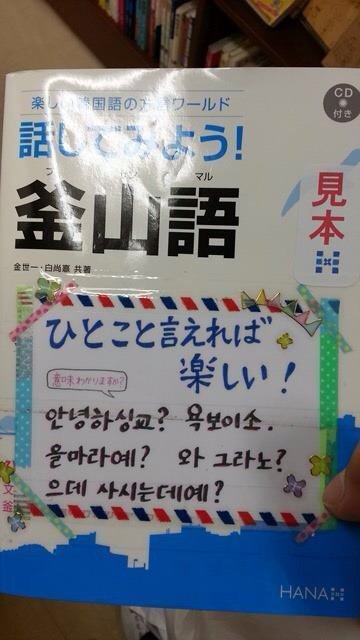 楽しい韓国語の方言ワールド
CD
付き
話してみよう!
プ サン マル
釜山語
見本
金世一・白尚憙 共著
ひとこと言えれば
楽しい!
意味わかりますか?
안녕하싱교? 욕보이소.
을마라예? 와 그라노?
으데 사시는데예?
文
釜
HANA